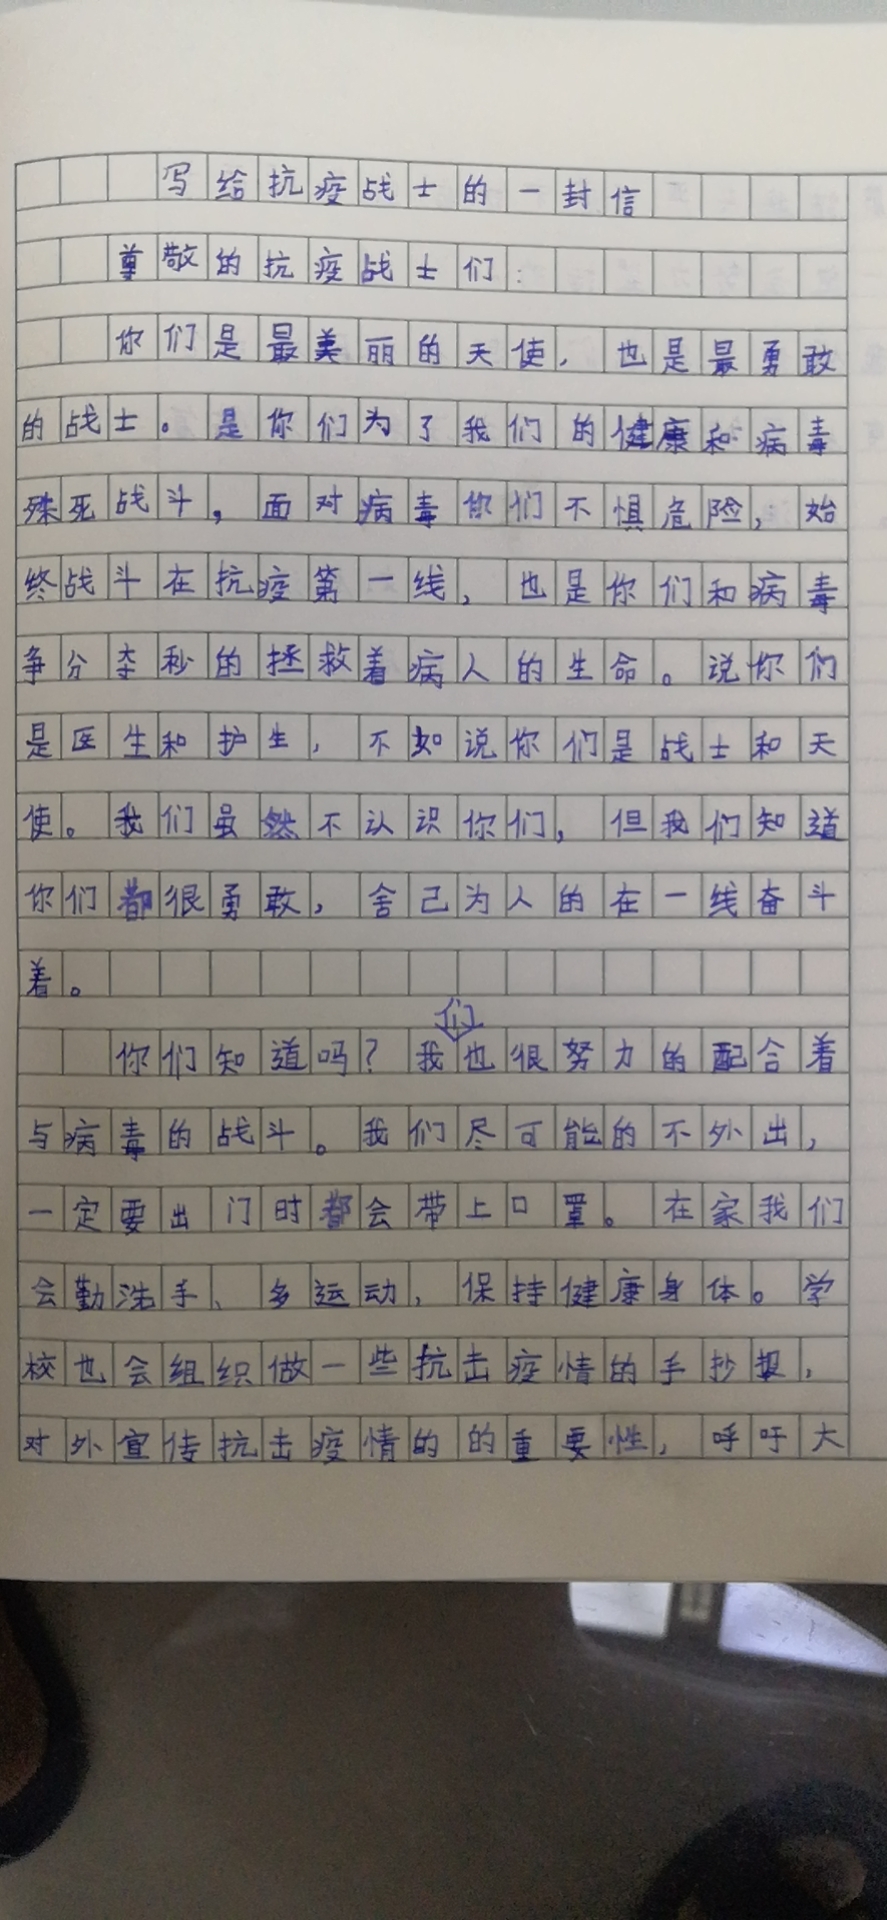 写给抗疫战士的一封信
尊敬的抗疫战士们:
你们是最美丽的天使，也是最勇敢
的战士。是你们为了我们的健康和病毒
殊死战斗，面对病毒你们不惧危险，始
终战斗在抗疫第一线，也是你们和病毒
争分夺秒的拯救着病人的生命。说你们
是医生和护生，不如说你们是战士和天
使。我们虽然不认识你们，但我们知道
你们都很勇敢，舍己为人的在一线奋斗
着。
你们知道吗？我们也很努力的配合着
与病毒的战斗。我们尽可能的不外出，
一定要出门时都会带上口罩。在家我们
会勤洗手、多运动，保持健康身体。学
校也会组织做一些抗击疫情的手抄报，
对外宣传抗击疫情的的重要性，呼吁大